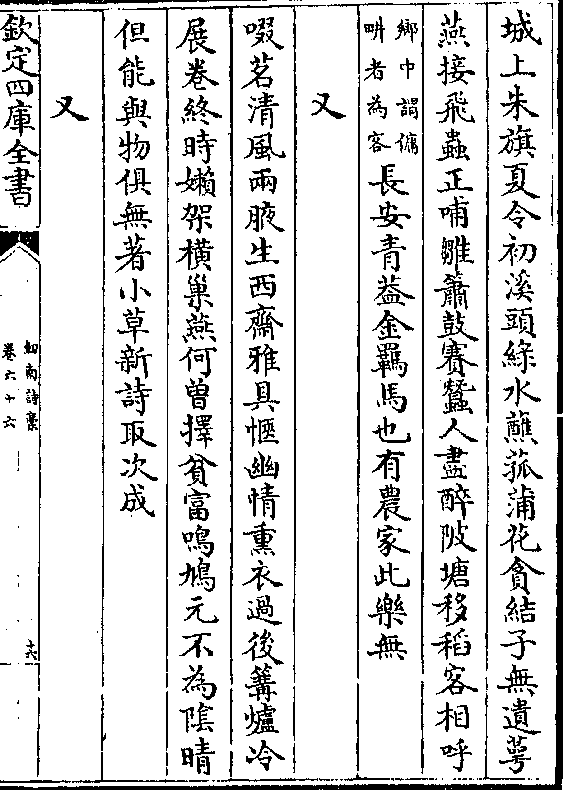 城上朱旗夏令初溪頭綠水蘸菰蒲花貪結子無遺萼
燕接飛蟲正哺雛簫鼓賽蠶人盡醉陂塘移稻客相呼
鄉中謂傭
畊者為客
長安青葢金羈馬也有農家此樂無
又
啜茗清風兩腋生西齋雅具愜幽情熏衣過後篝爐冷
展卷終時嬾架橫巢燕何曾擇貧富鳴鳩元不為陰晴
但能與物俱無著小草新詩取次成
又
欽定四庫全書
劎南詩稾
卷六十六
十六